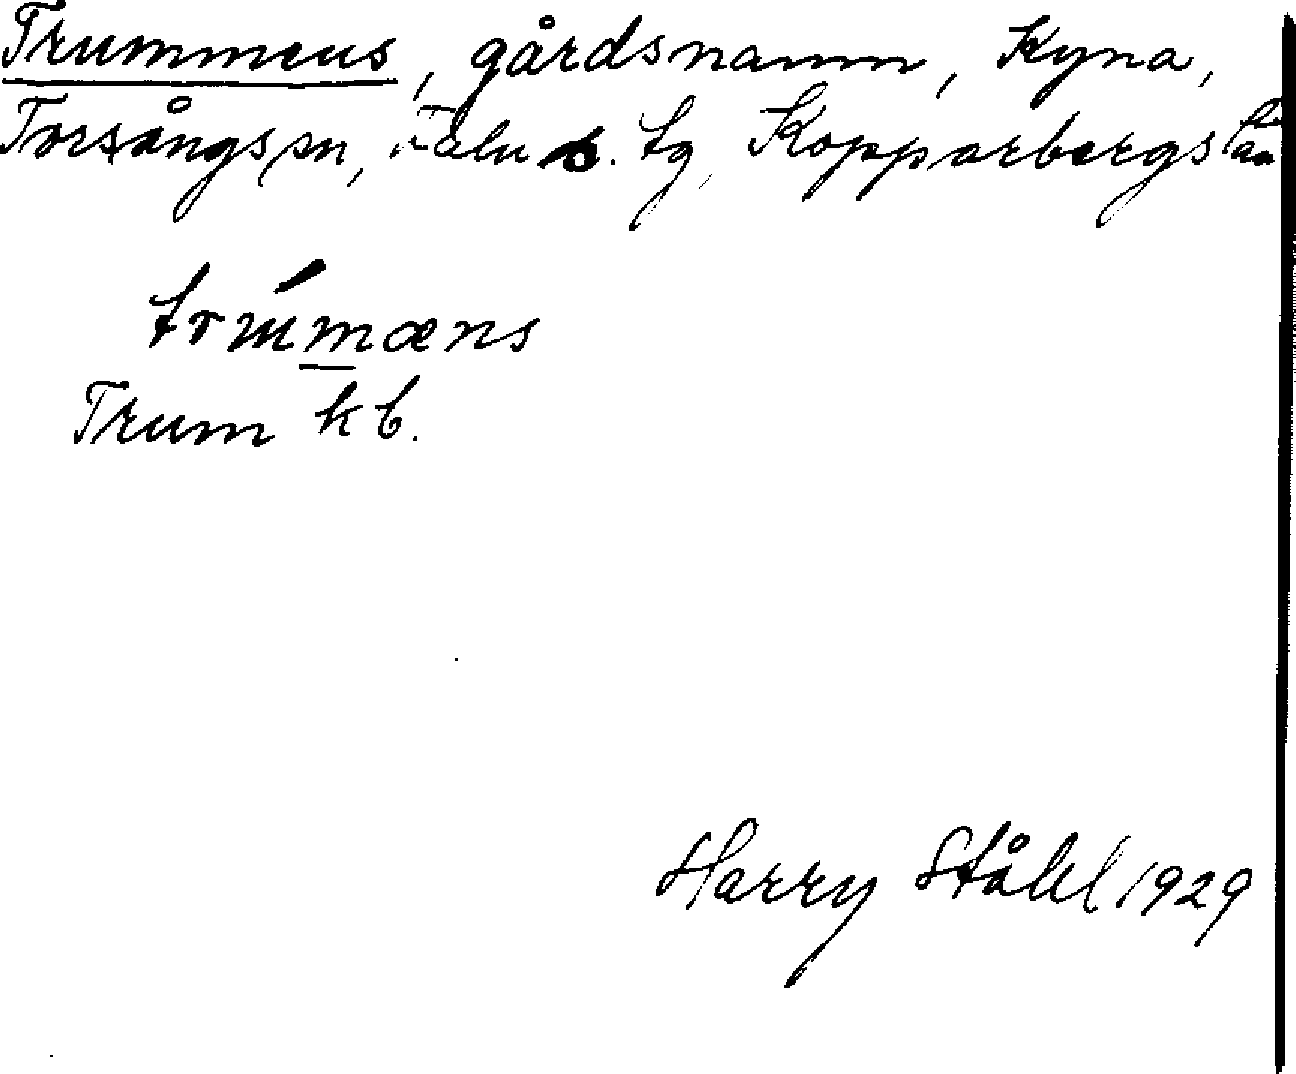 Trummens, gårdsnamn, Kyna,
Torsångs sn, Falu s. tg, Kopparbergs län
trúmmæns
Trum kb.
Harry Ståhl 1929